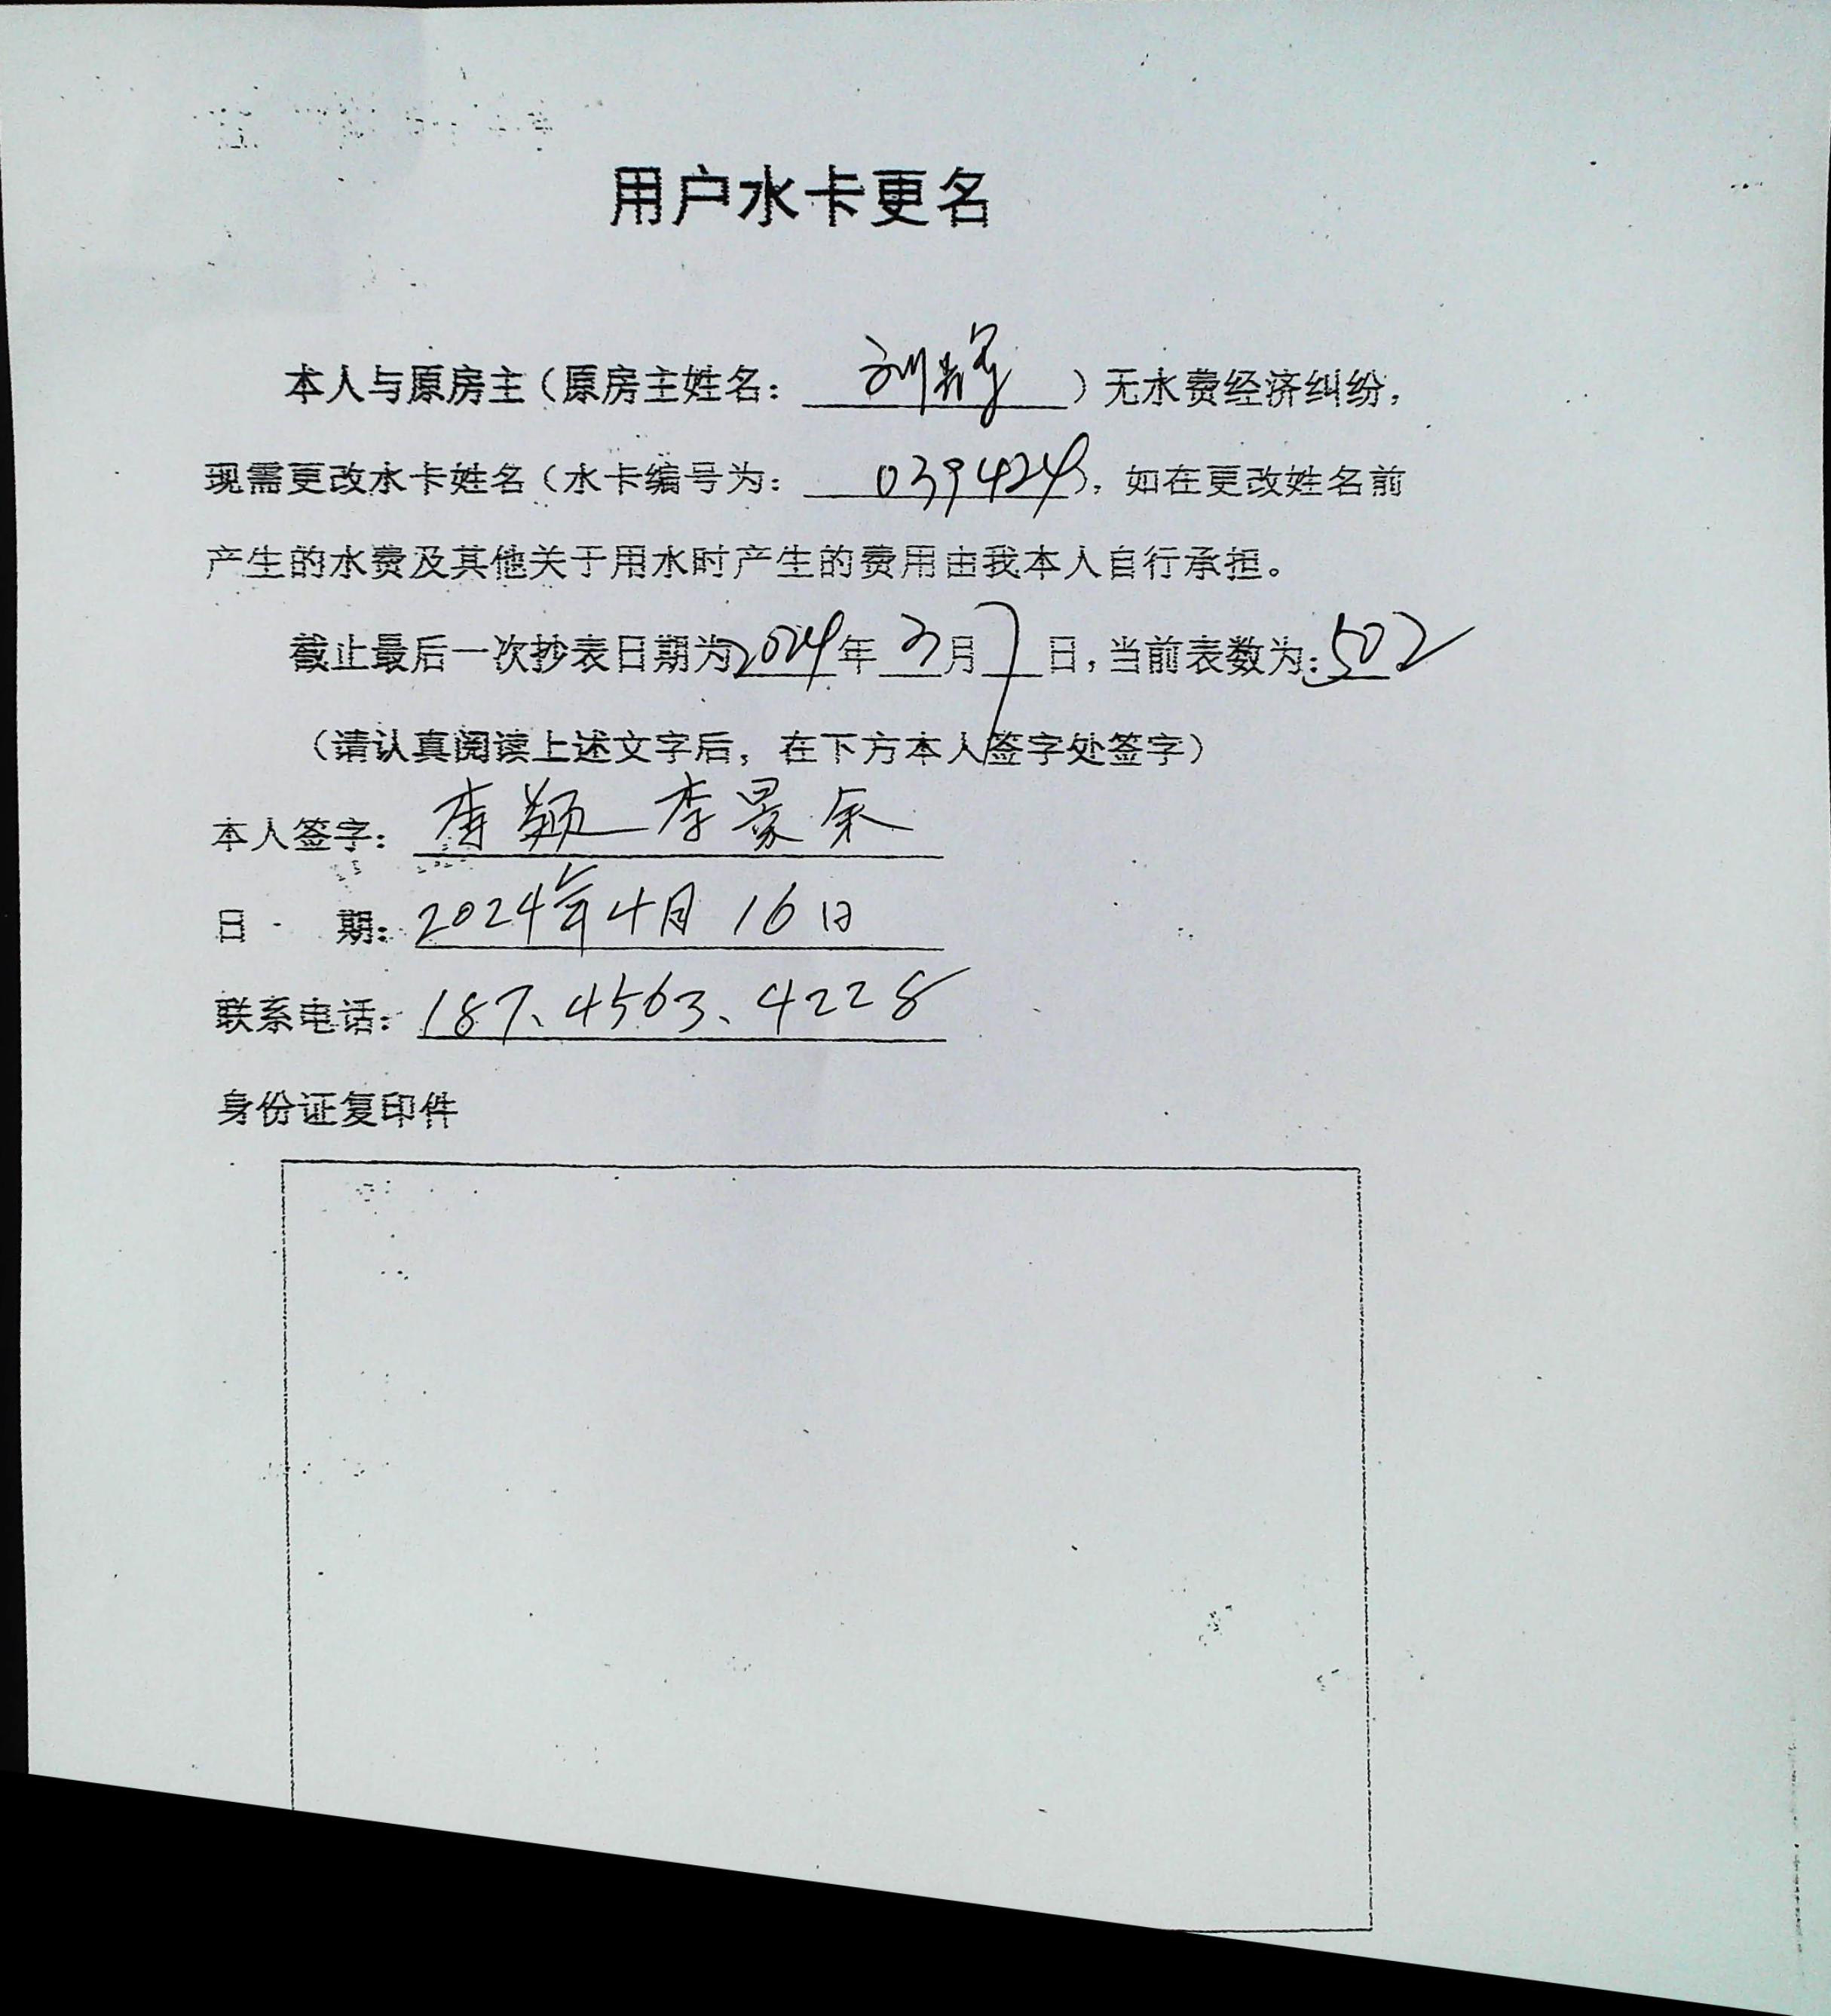 用户水卡更名
本人与原房主（原房主姓名：刘辉）无水费经济纠纷，
现需更改水卡姓名（水卡编号为：0394243），如在更改姓名前
产生的水费及其他关于用水时产生的费用由我本人自行承担。
截止最后一次抄表日期为2024年3月7日，当前表数为：502
（请认真阅读上述文字后，在下方本人签字处签字）
本人签字：李颖 李景余
日 期：2024年4月16日
联系电话：187、4563、4228
身份证复印件